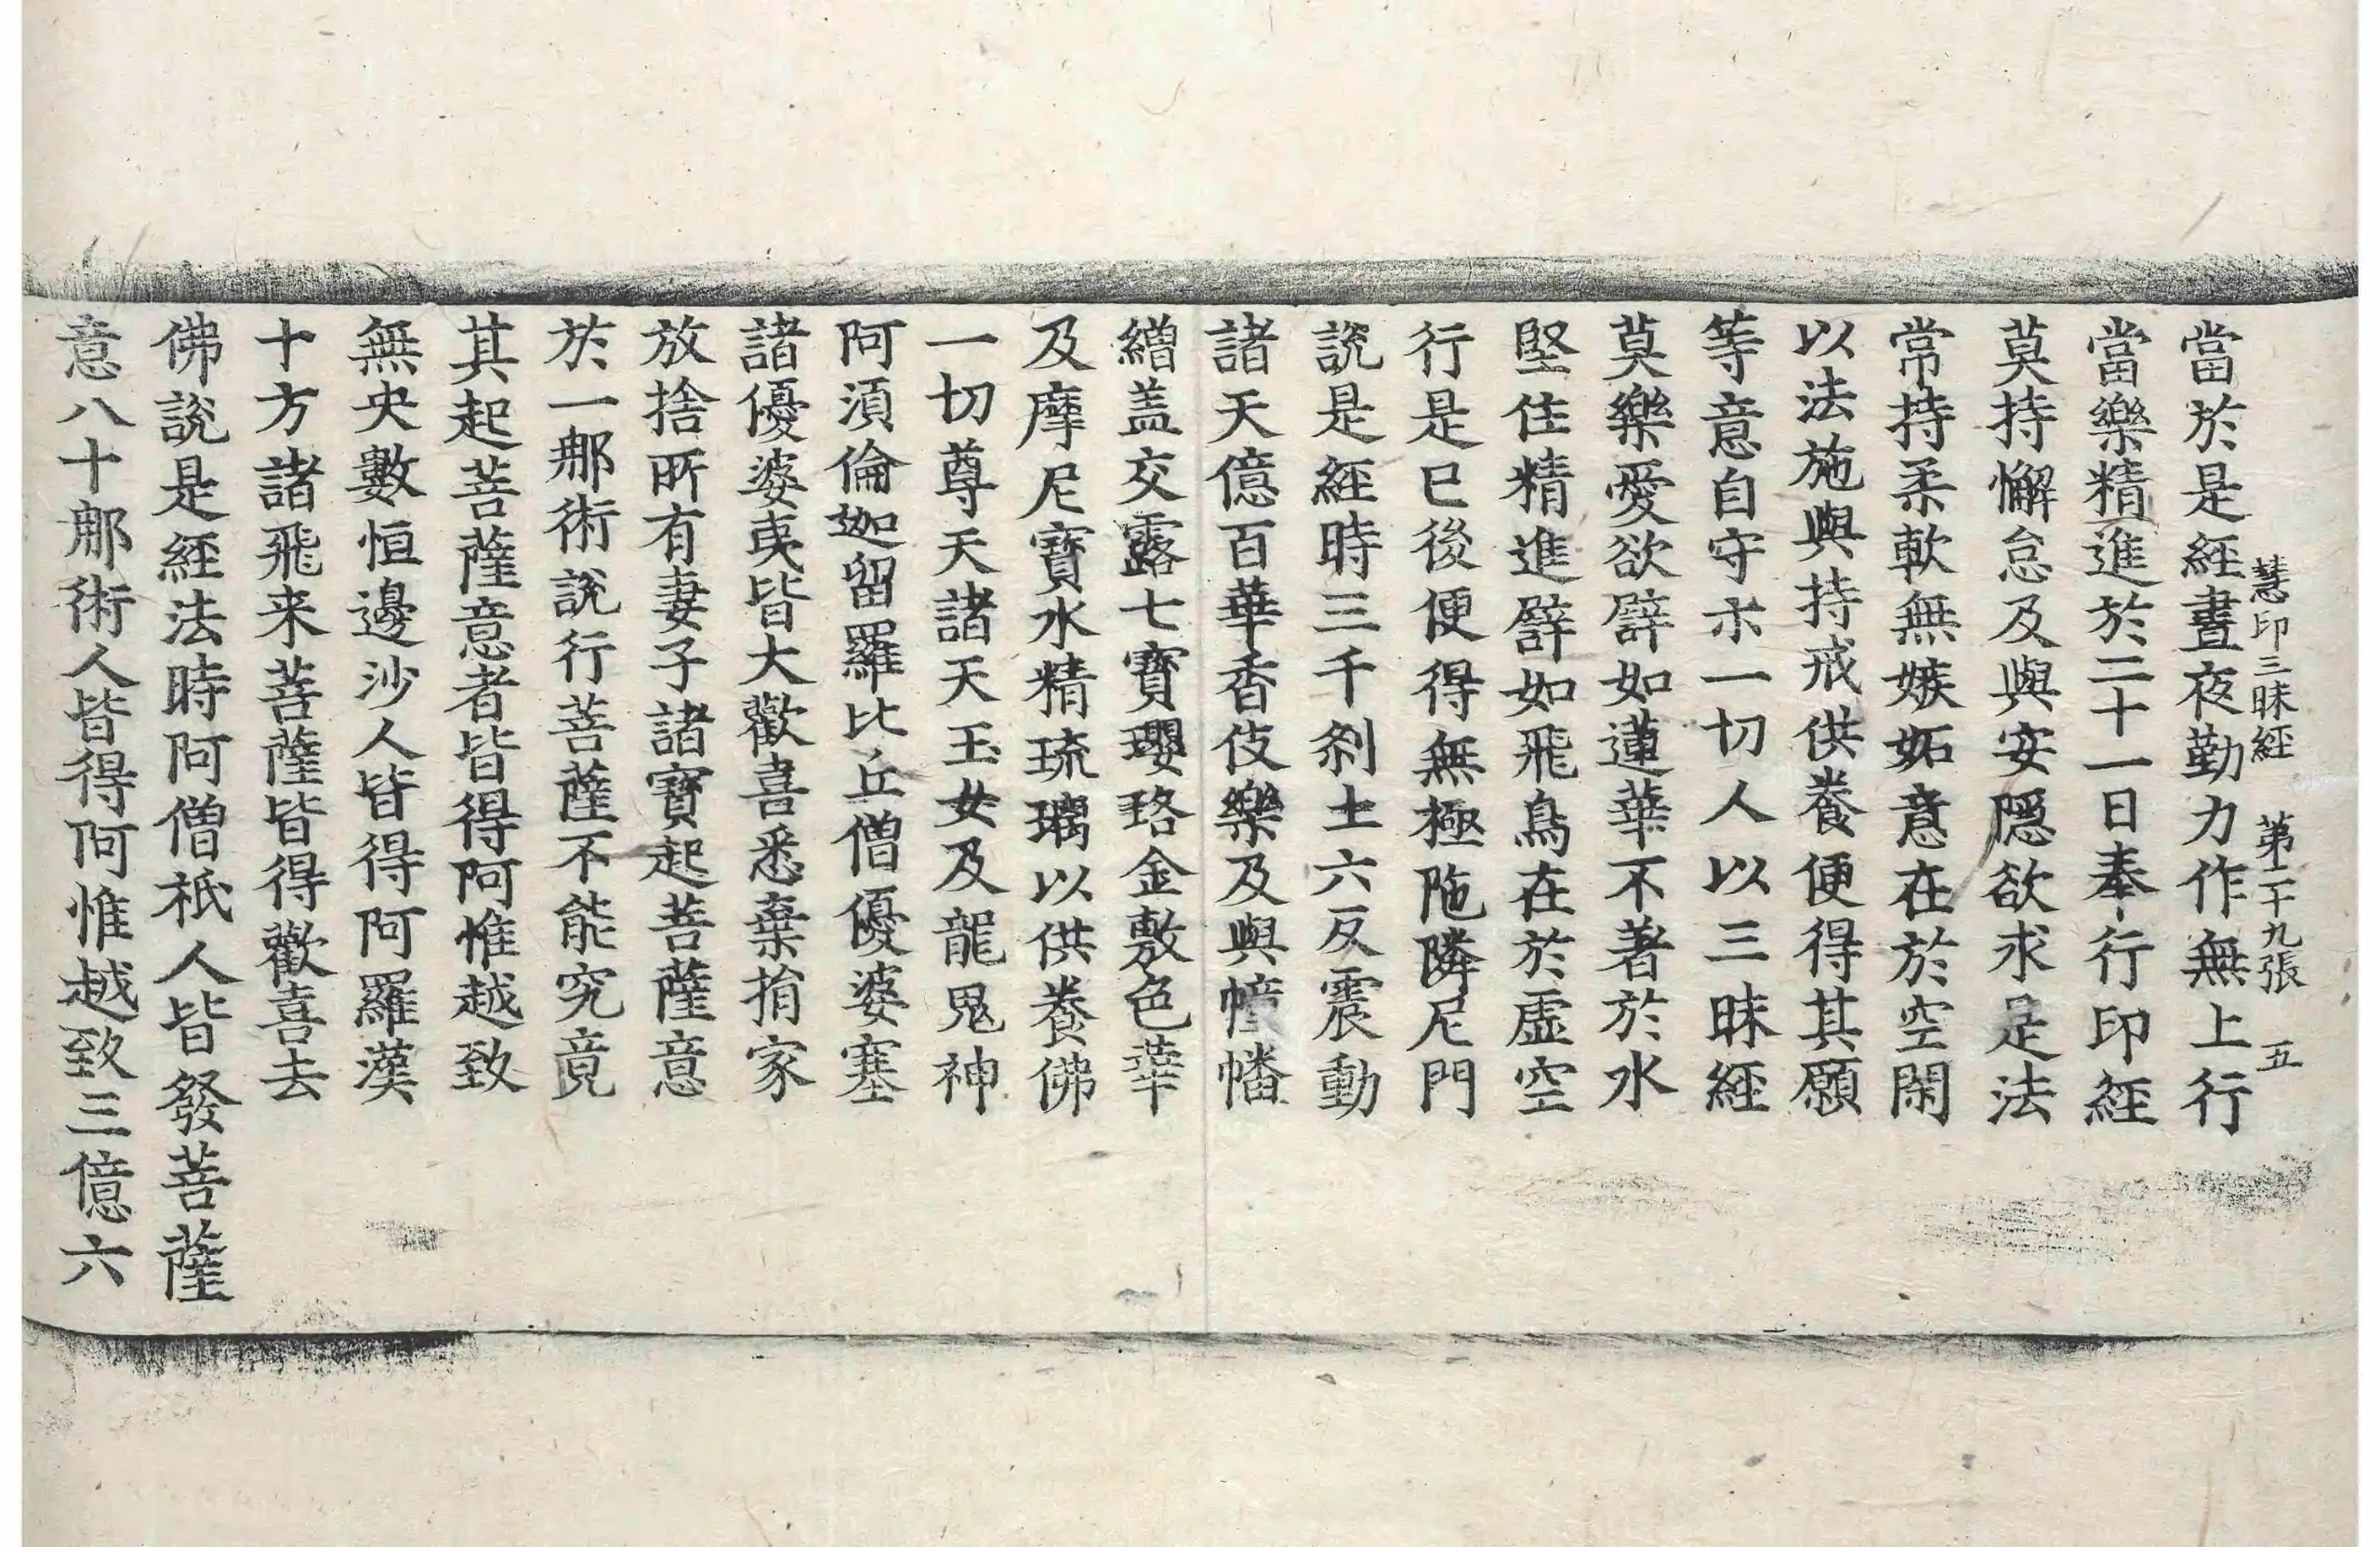 慧印三昧經 第二十九張 五
當於是經晝夜勤力作無上行
當樂精進於二十一日奉行印經
莫持懈怠及與安隱欲求是法
常持柔軟無嫉妬意在於空閑
以法施與持戒供養便得其願
等意自守示一切人以三昧經
莫樂愛欲譬如蓮華不著於水
堅住精進譬如飛鳥在於虛空
行是已後便得無極陁隣尼門
說是經時三千剎土六反震動
諸天億百華香伎樂及與幢幡
繒盖交露七寶瓔珞金敷色華
及摩尼寶水精琉璃以供養佛
一切尊天諸天玉女及龍鬼神
阿須倫迦留羅比丘僧優婆塞
諸優婆夷皆大歡喜悉棄捐家
放捨所有妻子諸寶起菩薩意
於一那術說行菩薩不能究竟
其起菩薩意者皆得阿惟越致
無央數恒邊沙人皆得阿羅漢
十方諸飛来菩薩皆得歡喜去
佛說是經法時阿僧祇人皆發菩薩
意八十那術人皆得阿惟越致三億六